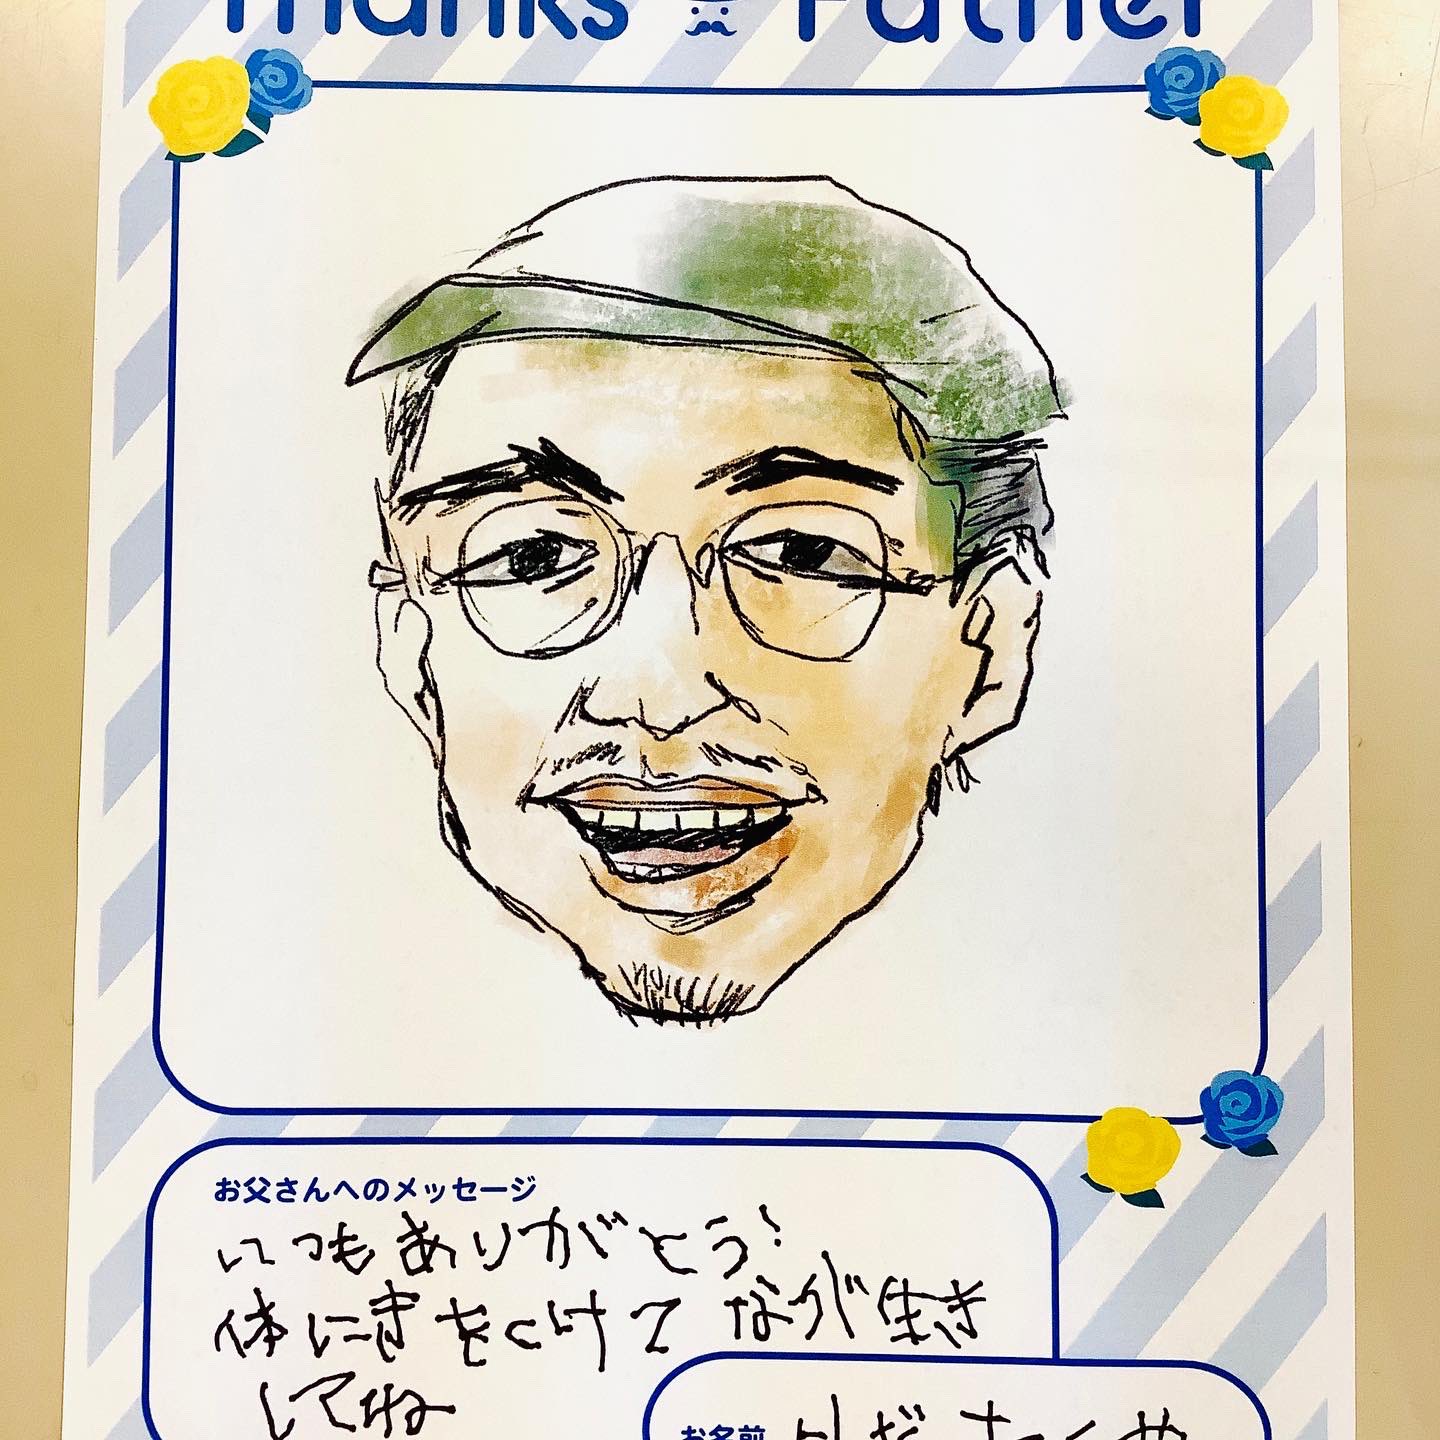 Thanks Father
お父さんへのメッセージ
いつもありがとう!
体にきをつけて なが生き
してね
お名前